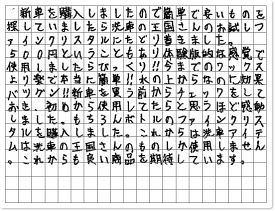 新車を購入しましたので簡単で安いものを
探していましたら洗車の王国さんのお試しフ
ァインクリスタルにたどり着きました。
500円ということもあり体験版的な感覚で
使用しましたらびっくり!!今までのワックス
より楽で本当に簡単!!水の上からなのに効果
バツグン!!新車を買う前からチェックをして
おき、初めから使用してたらと思うほど感動
しました。もちろんボトルのファインクリス
タルを購入しました。これからは洗車アイテ
ムは洗車の王国さんのものしか使用しません
。これからも良い商品を期待しています。